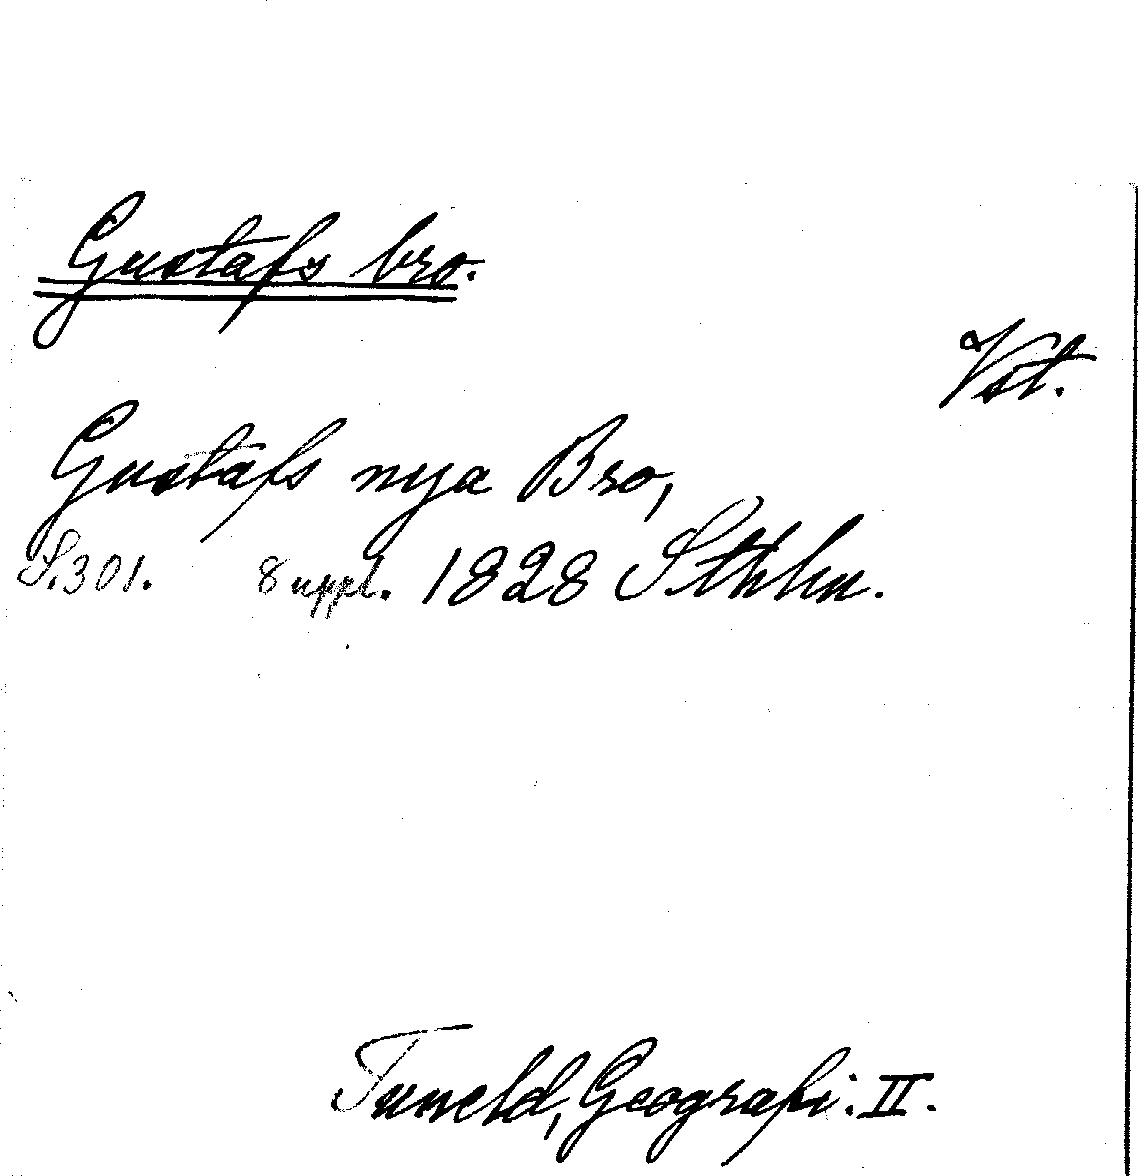 Gustafs bro.
Vst.
Gustafs nya Bro,
S.301. 8 uppl. 1828 Sthlm.
Tuneld, Geografi. II.